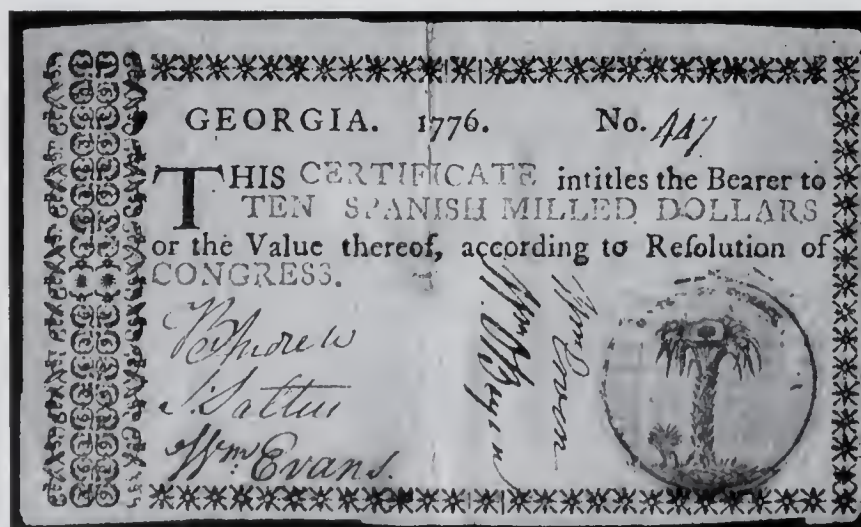 GEORGIA. 1776. No. 447
THIS CERTIFICATE intitles the Bearer to
TEN SPANISH MILLED DOLLARS
or the Value thereof, according to Reſolution of
CONGRESS.
Wm Evans.